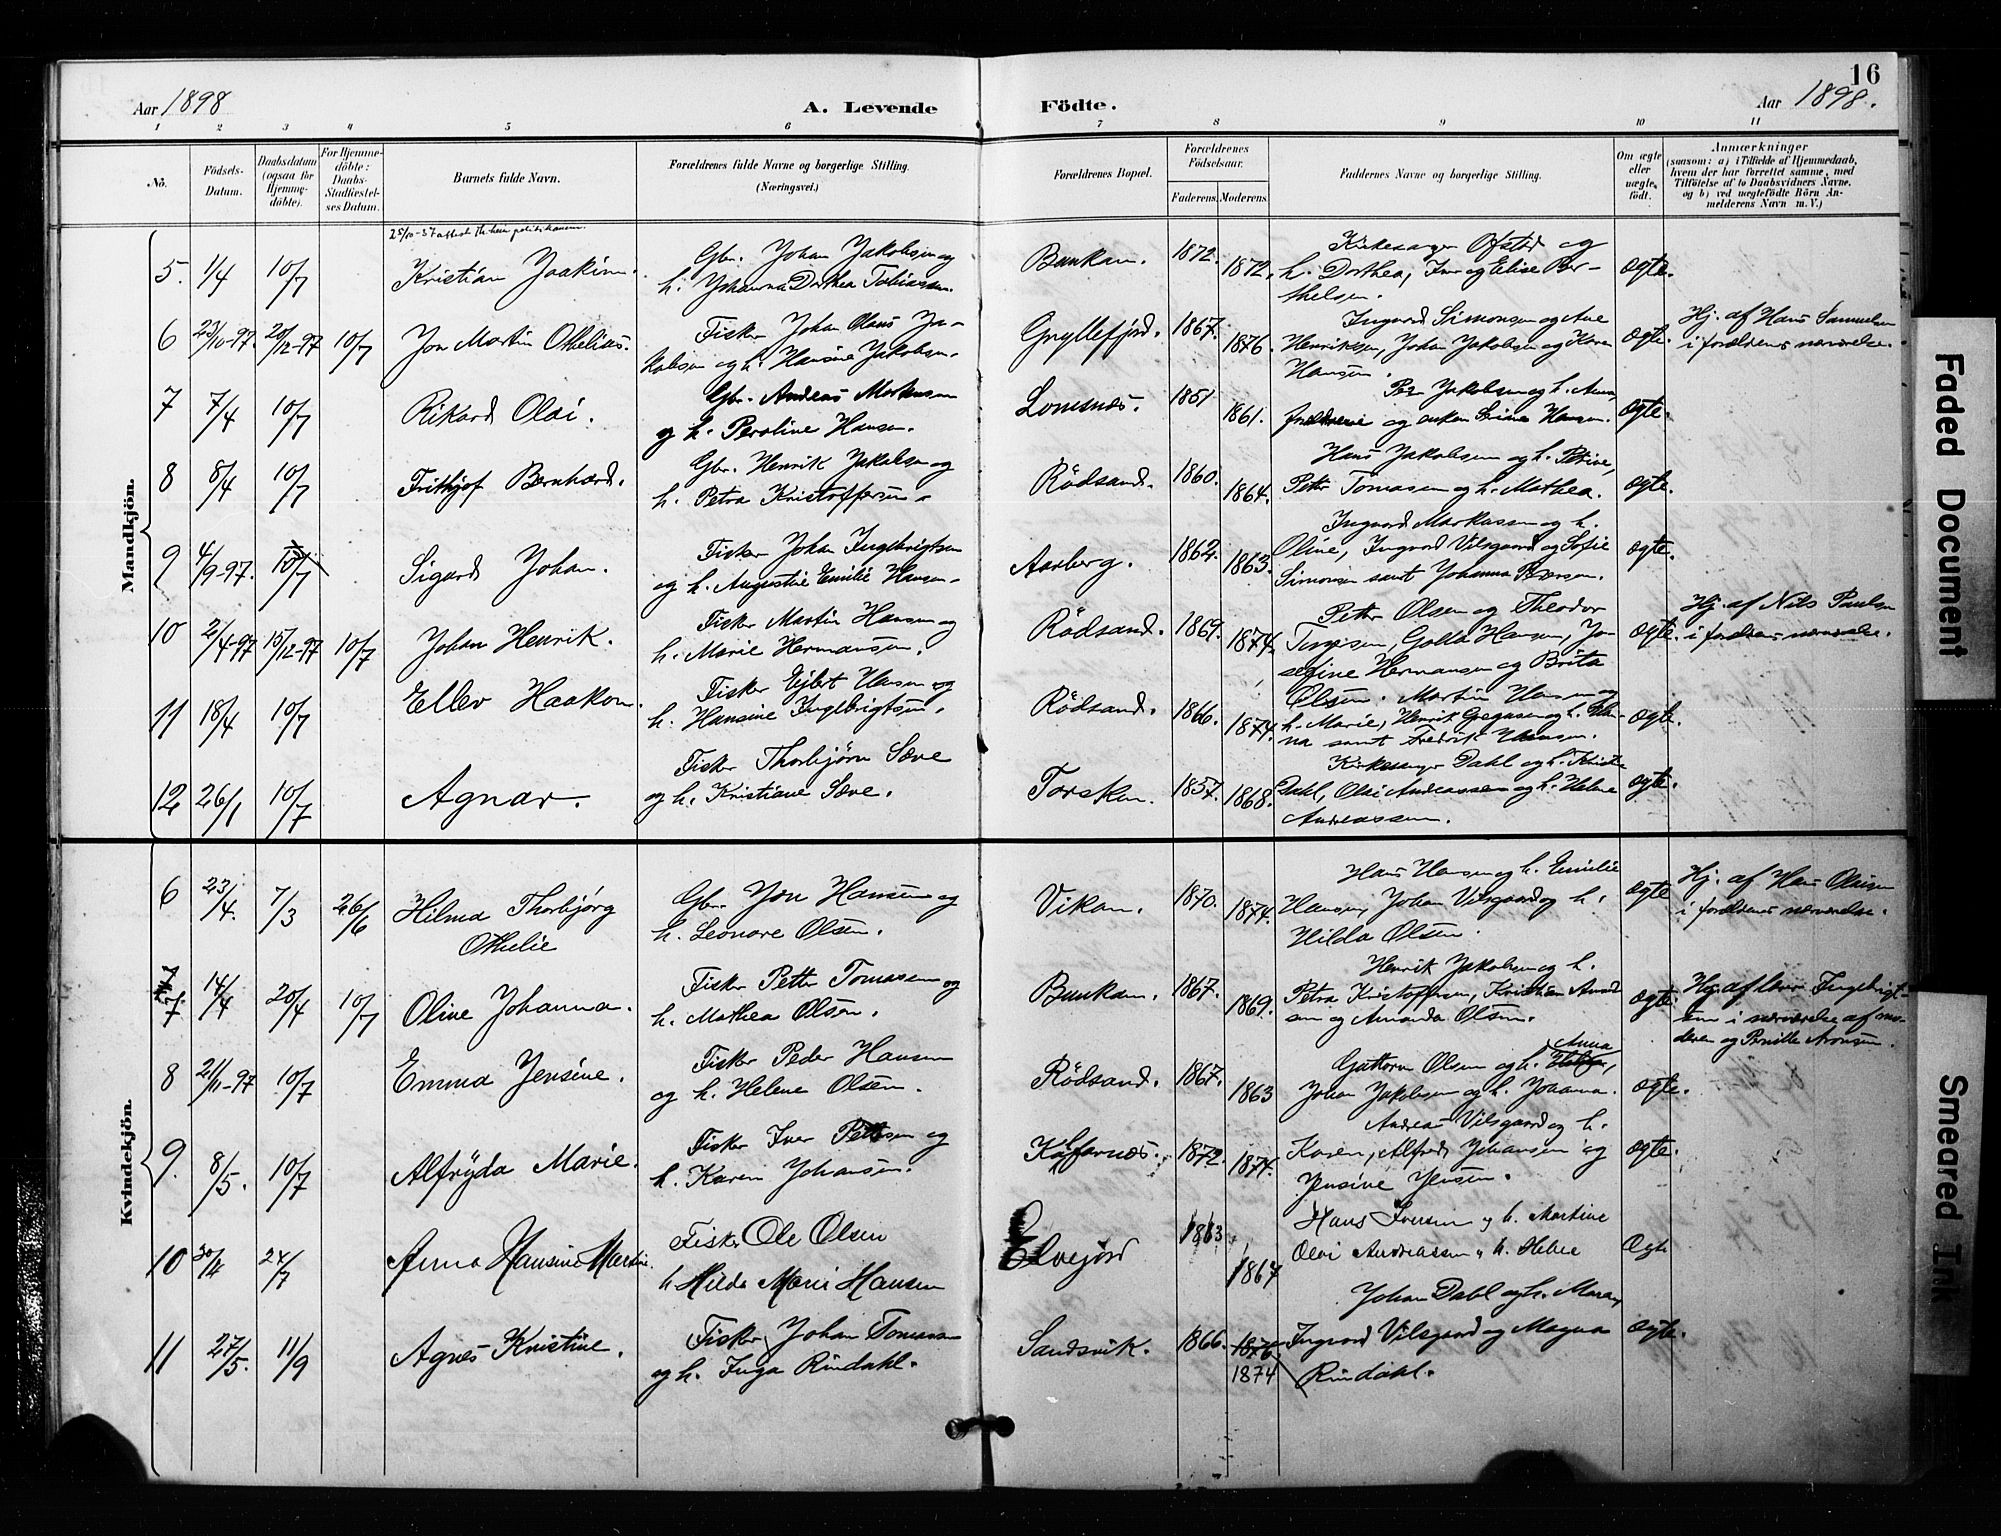 16
Aar 1898
A. Levende
Födte.
Aar 1898.
1 2 3 4 5 6 7 8 9 10 11
No.
Födsels-
Datum.
Daabsdatum
(ogsaa for
Hjemme-
döbte).
For Hjemme-
döbte:
Daabs-
Stadfæstel-
ses Datum.
Barnets fulde Navn.
Forældrenes fulde Navne og borgerlige Stilling.
(Næringsvei.)
Forældrenes Bopæl.
Forældrenes
Födselsaar.
Faderens.
Moderens.
Faddernes Navne og borgerlige Stilling.
Om ægte
eller
uægte
födt.
Anmærkninger
(saasom: a) i Tilfælde af Hjemmedaab,
hvem der har forrettet samme, med
Tilföielse af to Daabsvidners Navne,
og b) ved uægtefödte Börn An-
melderens Navn m. V.)
Mandkjön.
5. 1/4 10/7 Kristian Joakim. Gbr. Johan Jakobsen og
h. Johanna Dorthea Tobiassen. Bunkan. 1872. 1872. Kirkesanger Ofsted og
h. Dorthea, Iver og Elise Ber-
thelsen. ægte.
6 23/10-97. 20/12-97 10/7 Jon Martin Othelius. Fisker Johan Olaus Ja-
kobsen og h. Hansine Jakobsen. Gryllefjord. 1867. 1876. Ingvard Simonsen og Ane
Henriksen, Johan Jakobsen og Karen
Hansen. ægte. Hj. af Hans Samuelsen
i forældrenes nærværelse.
7 7/4 10/7 Rikard Olai. Gbr. Andreas Markusen
og h. Peroline Hansen. Lonesnæs. 1851 1861. Per Jakobsen og h. Anna,
forældrene og enken Hansen. ægte.
8 8/4 10/7 Frithjof Bernhard. Gbr. Henrik Jakobsen og
h. Petra Kristoffersen. Rödsand. 1860. 1864. Hans Jakobsen og h. Petrine,
Petter Tomasen og h. Mathea. ægte.
9 4/9-97. 10/7 Sigurd Johan. Fisker Johan Ingebrigtsen
og h. Augustie Emilie Hansen. Aarberg. 1862. 1863. Ingvard Markussen og h.
Oline, Ingvard Vilsgaard og Sofie
Simonsen samt Johanna Pedersen. ægte.
10 2/4-97 15/12-97 10/7 Johan Henrik. Fisker Martin Hansen og
h. Marie Hermansen. Rödsand. 1869. 1874. Petter Olsen og Theodor
Torgersen, Golla Hansen, Jo-
sefine Hermansen og Brita
Olsen. ægte. Hj. af Nils Paulsen
i forældrenes nærværelse.
11 18/4 10/7 Ellev Haakon. Fisker Ejlert Hansen og
h. Hansine Ingebrigtsen. Rödsand. 1866. 1874. Martin Hansen og
h. Marie, Henrik Gregusen og h. Han-
na samt Fredrik Hansen. ægte.
12 26/1 10/7 Agnar. Fisker Thorbjørn Sæve
og h. Kristiane Sæve. Torsken. 1857. 1868. Kirkesanger Dahl og h. Kristine
Dahl, Olai Andreassen og h. Helene
Andreassen. ægte.
Kvindekjön.
6 23/4. 7/3 26/6 Hilma Thorbjørg
Othelie Gbr. Jon Hansen og
h. Leonore Olsen. Vikan. 1870. 1874. Hans Hansen og h. Emilie
Hansen, Johan Vilsgaard og h.
Hilda Olsen. ægte Hj. af Hans Olaisen
i forældrenes nærværelse.
7 14/4 20/4 10/7 Oline Johanna. Fisker Petter Tomassen og
h. Mathea Olsen. Bunkan. 1867. 1869. Henrik Jakobsen og h.
Petra Kristoffersen, Kristian
sen og Amanda Olsen. ægte. Hj. af Iver Ingebrigt-
sen i nærværelse af mo-
deren og Pernille Aronsen.
8 21/11-97 10/7 Emma Jensine. Fisker Peder Hansen
og h. Helene Olsen. Rödsand. 1867. 1863 Guttorm Olsen og h. Anna
Johan Jakobsen og h. Johanna. ægte.
9. 8/5. 10/7 Alfryda Marie. Fisker Iver Pettersen og
h. Karen Johansen. Kaffornæs. 1872. 1874. Andreas Vilsgaard og h.
Karen, Alfred Johansen og
Jensine Jensen. ægte.
10 30/4 24/7 Anna Hansine Martine. Fisker Ole Olsen
h Hilda Marie Hansen Elvejord 1863 1867 Hans Iversen og h. Martine
Olai Andreassen og h. Helene ægte
11 27/5. 11/9 Agnes Kristine. Fisker Johan Tomassen
og h. Inga Rindahl. Sandsvik. 1866. 1876. 1874 Johan Dahl og h. Maren,
Ingvard Vilsgaard og Magna
Rindahl. ægte.
Faded Document
Smeared Ink